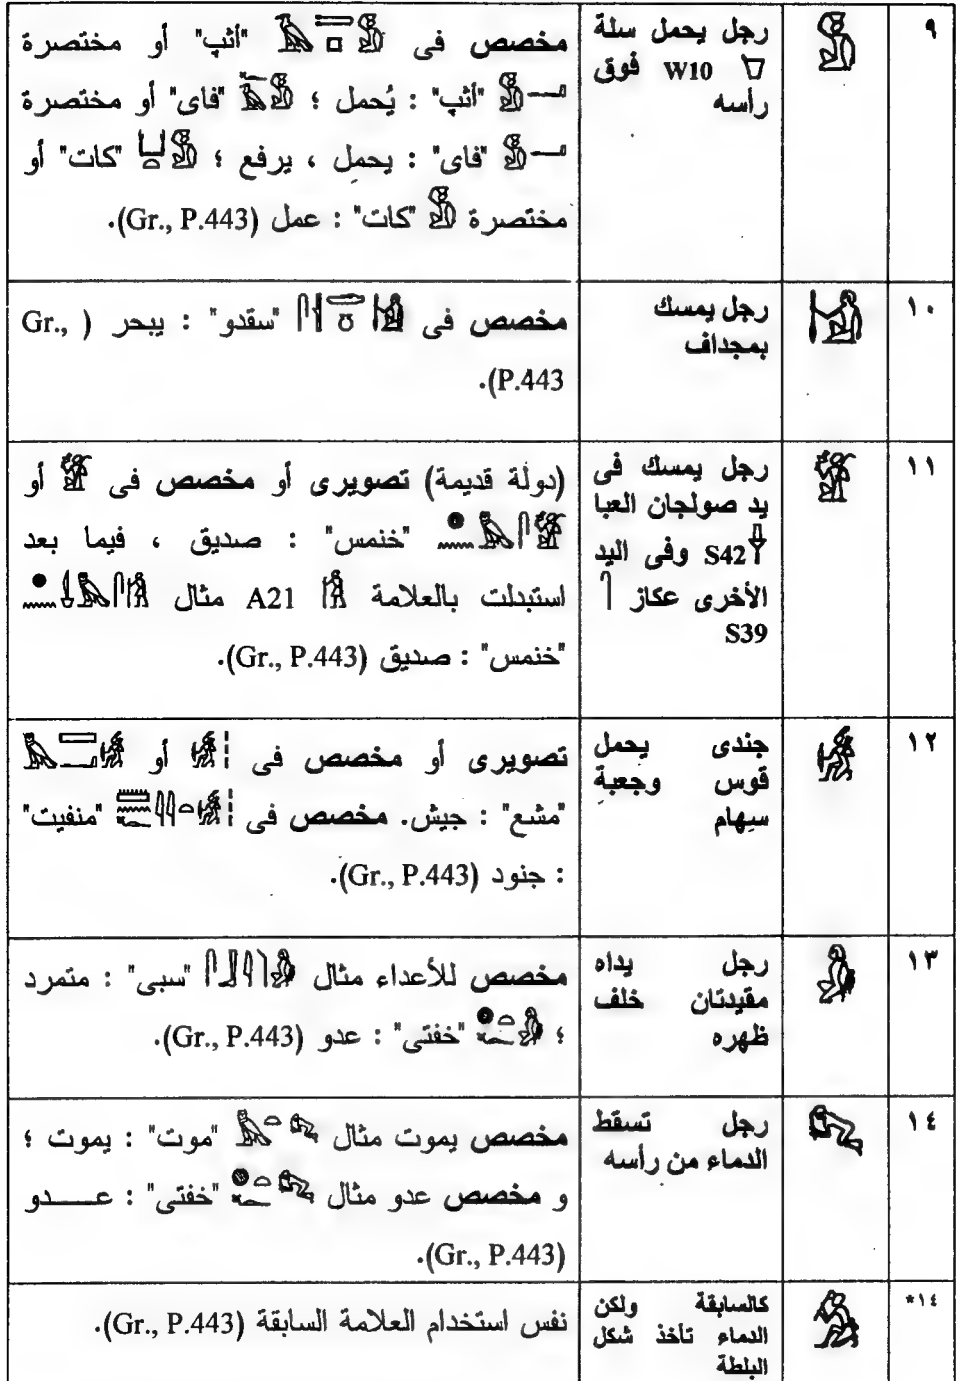 ٩
رجل يحمل سلة
W10 فوق
رأسه
مخصص فى "أثب" أو مختصرة
"أثب" : يُحمل ؛ "فاى" أو مختصرة
"فاى" : يحمل ، يرفع ؛ "كات" أو
مختصرة "كات" : عمل (Gr., P.443).
١٠
رجل يمسك
بمجداف
مخصص فى "سقدو" : يبحر ( Gr.,
P.443).
١١
رجل يمسك فى
يد صولجان العبا
S42 وفى اليد
الأخرى عكاز
S39
(دولة قديمة) تصويرى أو مخصص فى أو
"خنمس" : صديق ، فيما بعد
استبدلت بالعلامة A21 مثال
"خنمس" : صديق (Gr., P.443).
١٢
جندى يحمل
قوس وجعبة
سهام
تصويرى أو مخصص فى أو
"مشع" : جيش. مخصص فى "منفيت"
: جنود (Gr., P.443).
١٣
رجل يداه
مقيدتان خلف
ظهره
مخصص للأعداء مثال "سبى" : متمرد
؛ "خفتى" : عدو (Gr., P.443).
١٤
رجل تسقط
الدماء من رأسه
مخصص يموت مثال "موت" : يموت ؛
و مخصص عدو مثال "خفتى" : عـــدو
(Gr., P.443).
*١٤
كالسابقة ولكن
الدماء تأخذ شكل
البلطة
نفس استخدام العلامة السابقة (Gr., P.443).